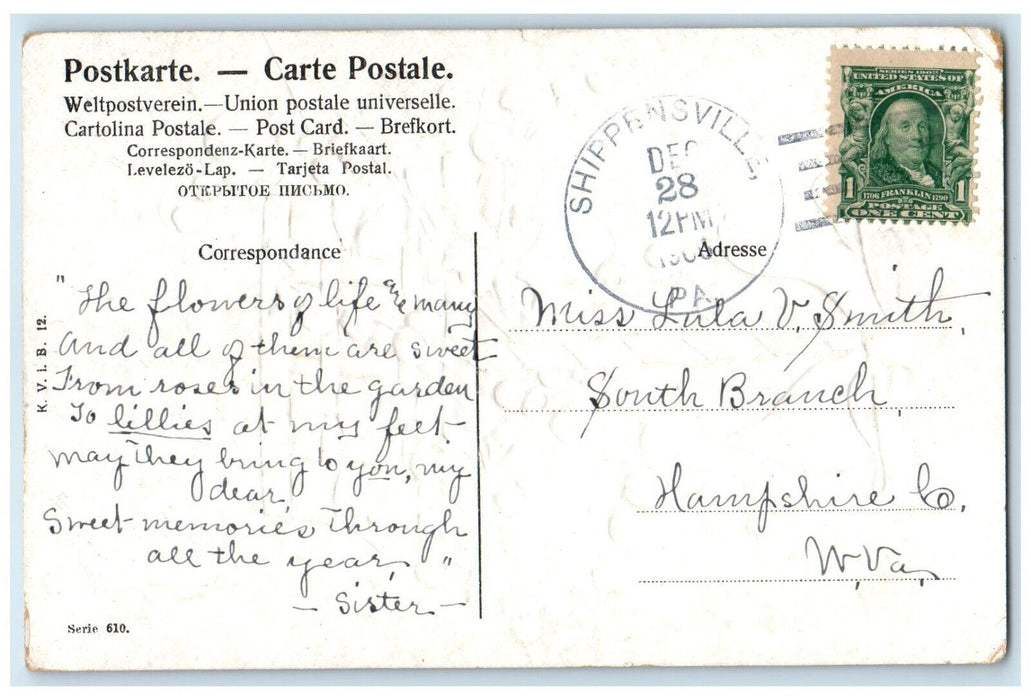 Postkarte. — Carte Postale.
Weltpostverein.—Union postale universelle.
Cartolina Postale. — Post Card. — Brefkort.
Correspondenz-Karte. — Briefkaart.
Levelező-Lap. — Tarjeta Postal.
ОТКРЫТОЕ ПИСЬМО.
SERIES 1902
UNITED STATES OF
AMERICA
1 1706 FRANKLIN 1790 1
POSTAGE
ONE CENT
SHIPPENSVILLE,
DEC
28
12PM
PA.
Correspondance
Adresse
"The flowers of life are many
And all of them are sweet
From roses in the garden
To lillies at my feet
may they bring to you, my
dear
Sweet memories through
all the year, "
— Sister —
Miss Lula V. Smith,
South Branch,
Hampshire Co,
W, Va,
K. V. i. B. 12.
Serie 610.